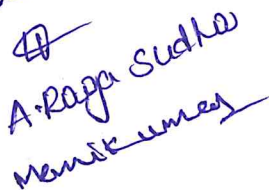 A. Raga Sudha
Manikumar